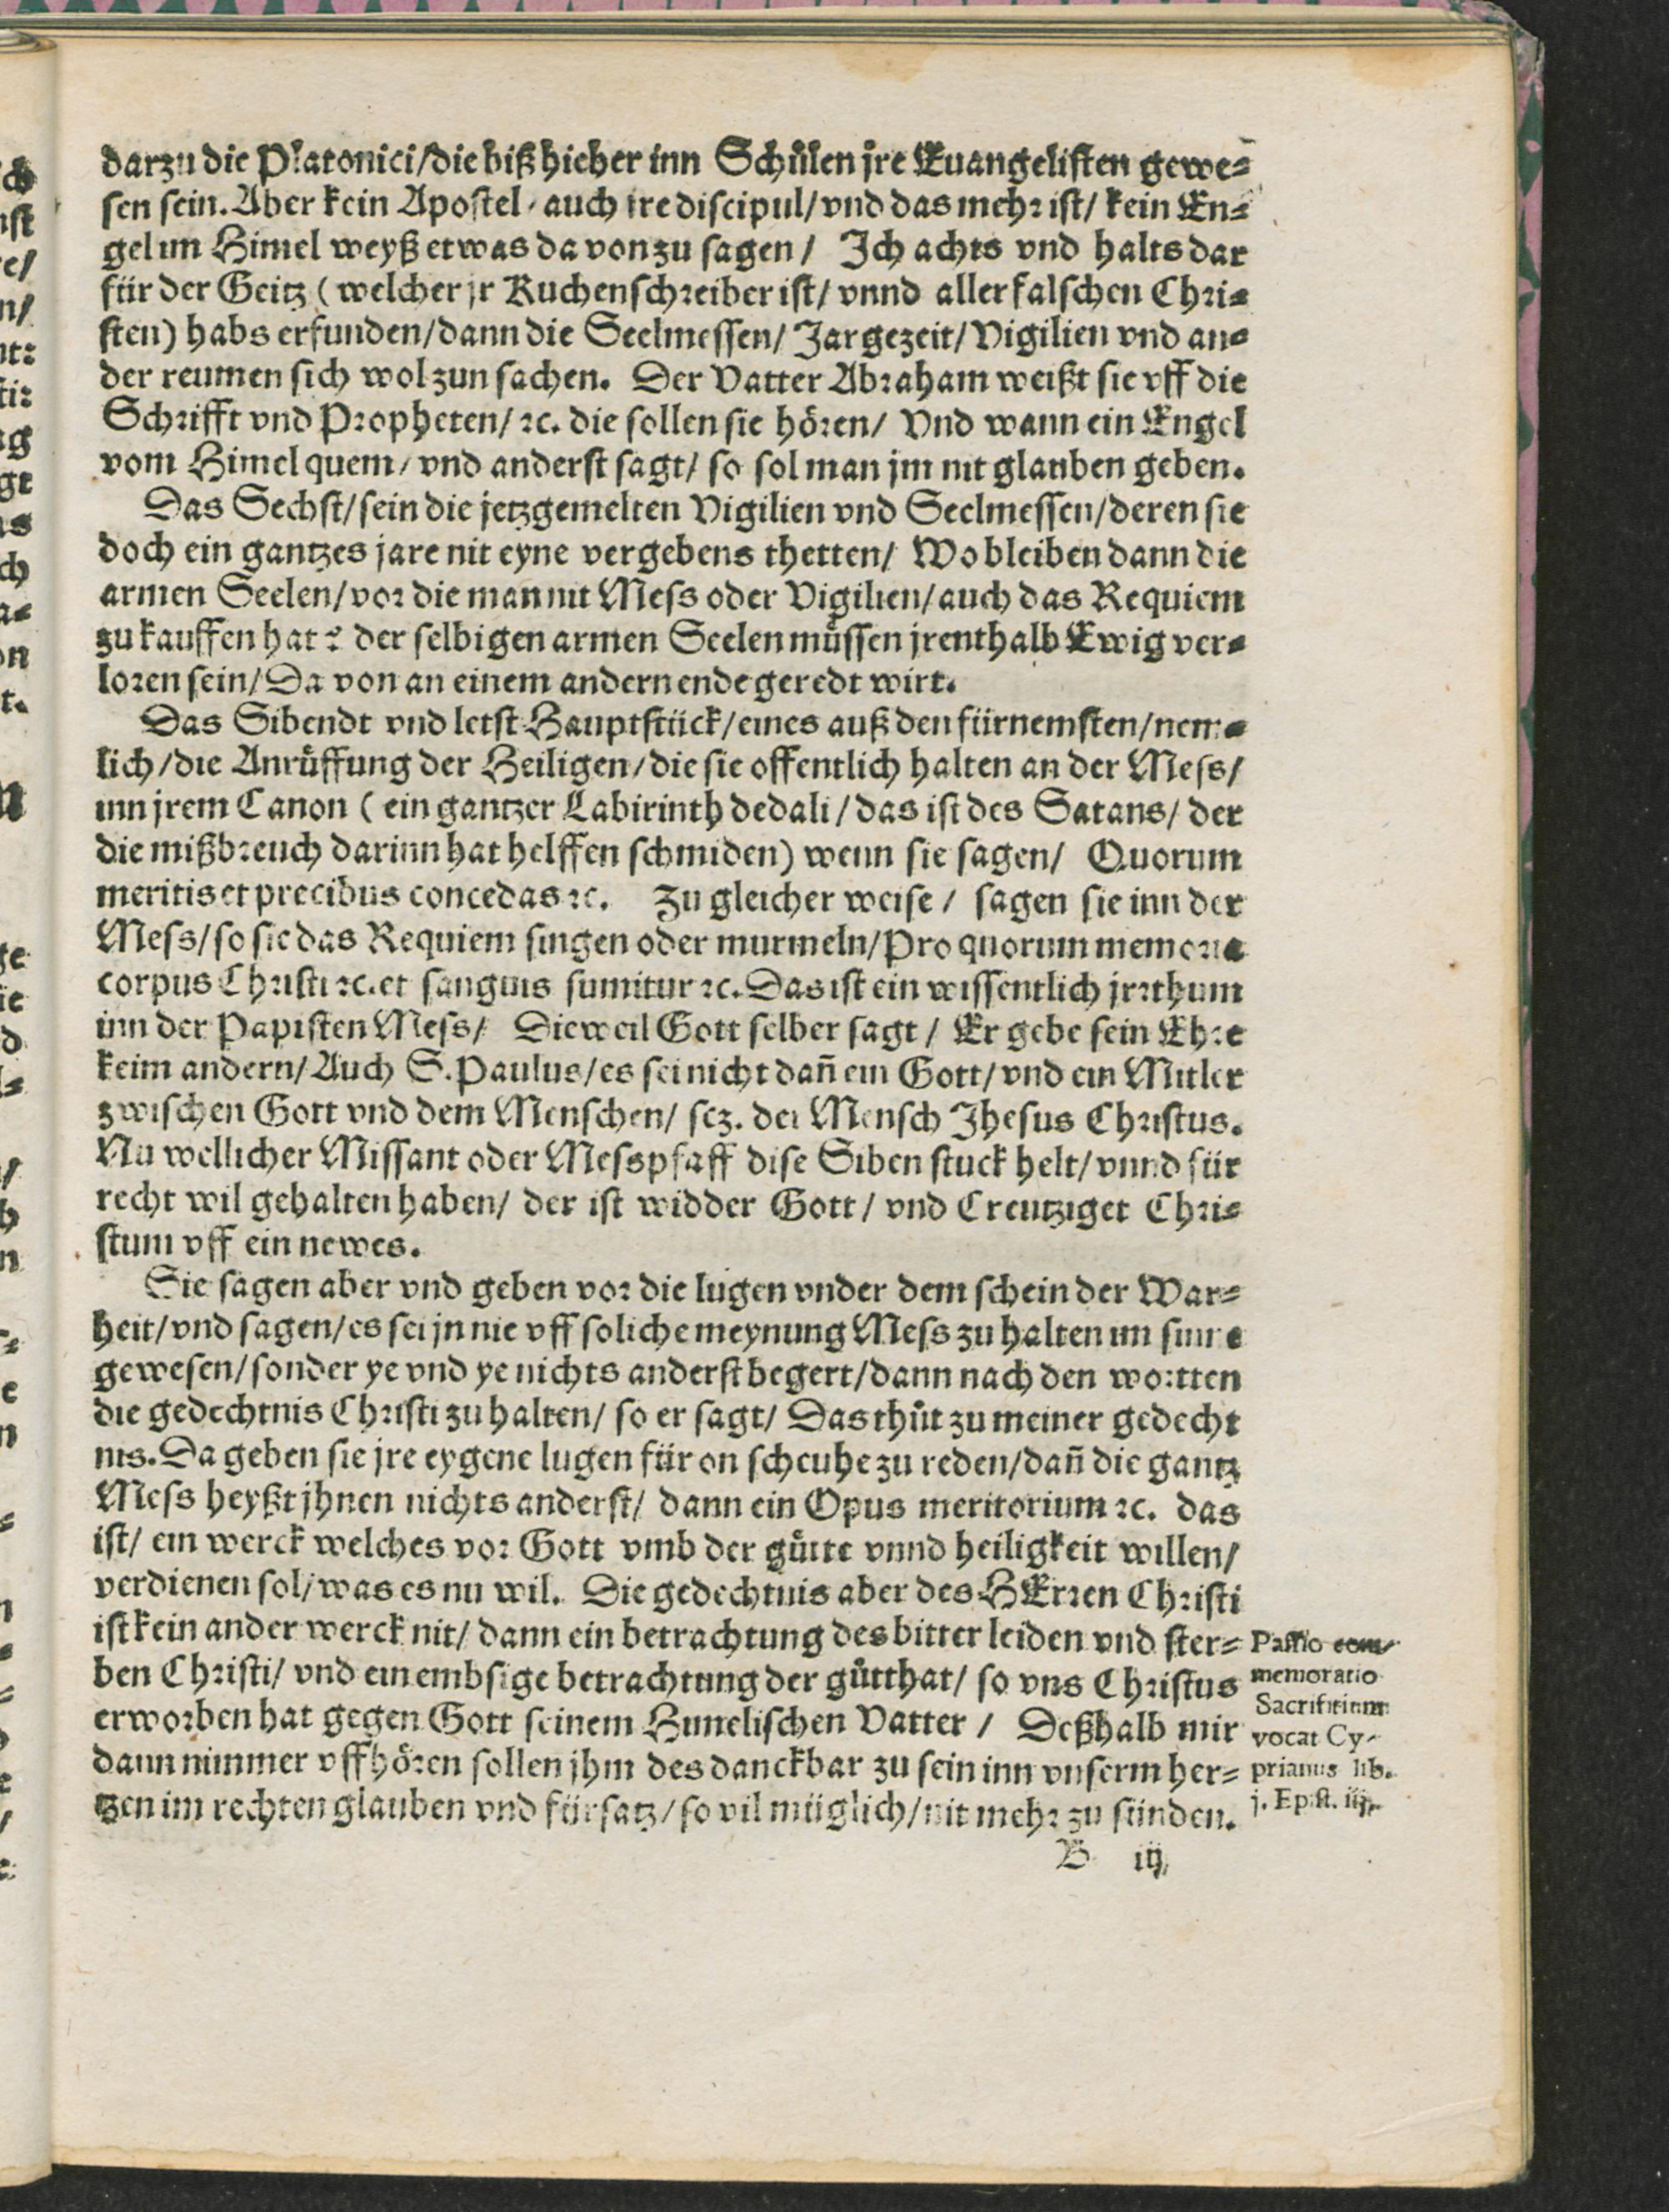 darzu die Platonici/die biß hieher inn Schůlen jre Euangelisten gewe⸗
sen sein. Aber kein Apostel/ auch ire discipul/vnd das mehr ist/ kein En⸗
gel im Himel weyß etwas da von zu sagen/ Ich achts vnd halts dar
für der Geitz (welcher jr Kuchenschreiber ist/ vnnd aller falschen Chri⸗
sten) habs erfunden/dann die Seelmessen/ Jargezeit/Vigilien vnd an⸗
der reumen sich wol zun sachen. Der Vatter Abraham weißt sie vff die
Schrifft vnd Propheten/ ꝛc. die sollen sie hören/ Vnd wann ein Engel
vom Himel quem/ vnd anderst sagt/ so sol man jm nit glauben geben.
Das Sechst/sein die jetzgemelten Vigilien vnd Seelmessen/deren sie
doch ein gantzes jare nit eyne vergebens thetten/ Wo bleiben dann die
armen Seelen/vor die man nit Mess oder Vigilien/auch das Requiem
zu kauffen hat? der selbigen armen Seelen müssen jrenthalb Ewig ver⸗
loren sein/Da von an einem andern ende geredt wirt.
Das Sibendt vnd letst Hauptstück/eines auß den fürnemsten/nem⸗
lich/die Anrůffung der Heiligen/die sie offentlich halten an der Mess/
inn jrem Canon (ein gantzer Labirinth dedali/das ist des Satans/ der
die mißbreuch darinn hat helffen schmiden) wenn sie sagen/ Quorum
meritis et precibus concedas ꝛc. Zu gleicher weise/ sagen sie inn der
Mess/so sie das Requiem singen oder murmeln/Pro quorum memoria
corpus Christi ꝛc. et sanguis sumitur ꝛc. Das ist ein wissentlich jrrthum
inn der Papisten Mess/ Dieweil Gott selber sagt/ Er gebe sein Ehre
keim andern/Auch S. Paulus/es sei nicht dañ ein Gott/vnd ein Mitler
zwischen Gott vnd dem Menschen/ scz. der Mensch Jhesus Christus.
Nu wellicher Missant oder Messpfaff dise Siben stuck helt/vnnd für
recht wil gehalten haben/ der ist widder Gott/ vnd Creutziget Chri⸗
stum vff ein newes.
Sie sagen aber vnd geben vor die lugen vnder dem schein der War⸗
heit/vnd sagen/es sei jn nie vff soliche meynung Mess zu halten im sinne
gewesen/sonder ye vnd ye nichts anderst begert/dann nach den wortten
die gedechtnis Christi zu halten/ so er sagt/ Das thůt zu meiner gedecht
nis. Da geben sie jre eygene lugen für on scheuhe zu reden/dañ die gantz
Mess heyßt jhnen nichts anderst/ dann ein Opus meritorium ꝛc. das
ist/ ein werck welches vor Gott vmb der gůtte vnnd heiligkeit willen/
verdienen sol/was es nu wil. Die gedechtnis aber des HErren Christi
ist kein ander werck nit/ dann ein betrachtung des bitter leiden vnd ster⸗
ben Christi/ vnd ein embsige betrachtung der gůtthat/ so vns Christus
erworben hat gegen Gott seinem Himelischen Vatter/ Deßhalb mir
dann nimmer vffhören sollen jhm des danckbar zu sein inn vnserm her⸗
tzen im rechten glauben vnd fürsatz/so vil müglich/nit mehr zu sünden.
Passio com-
memoratio
Sacrificium
vocat Cy-
prianus lib.
j. Epist. iij.
B iij